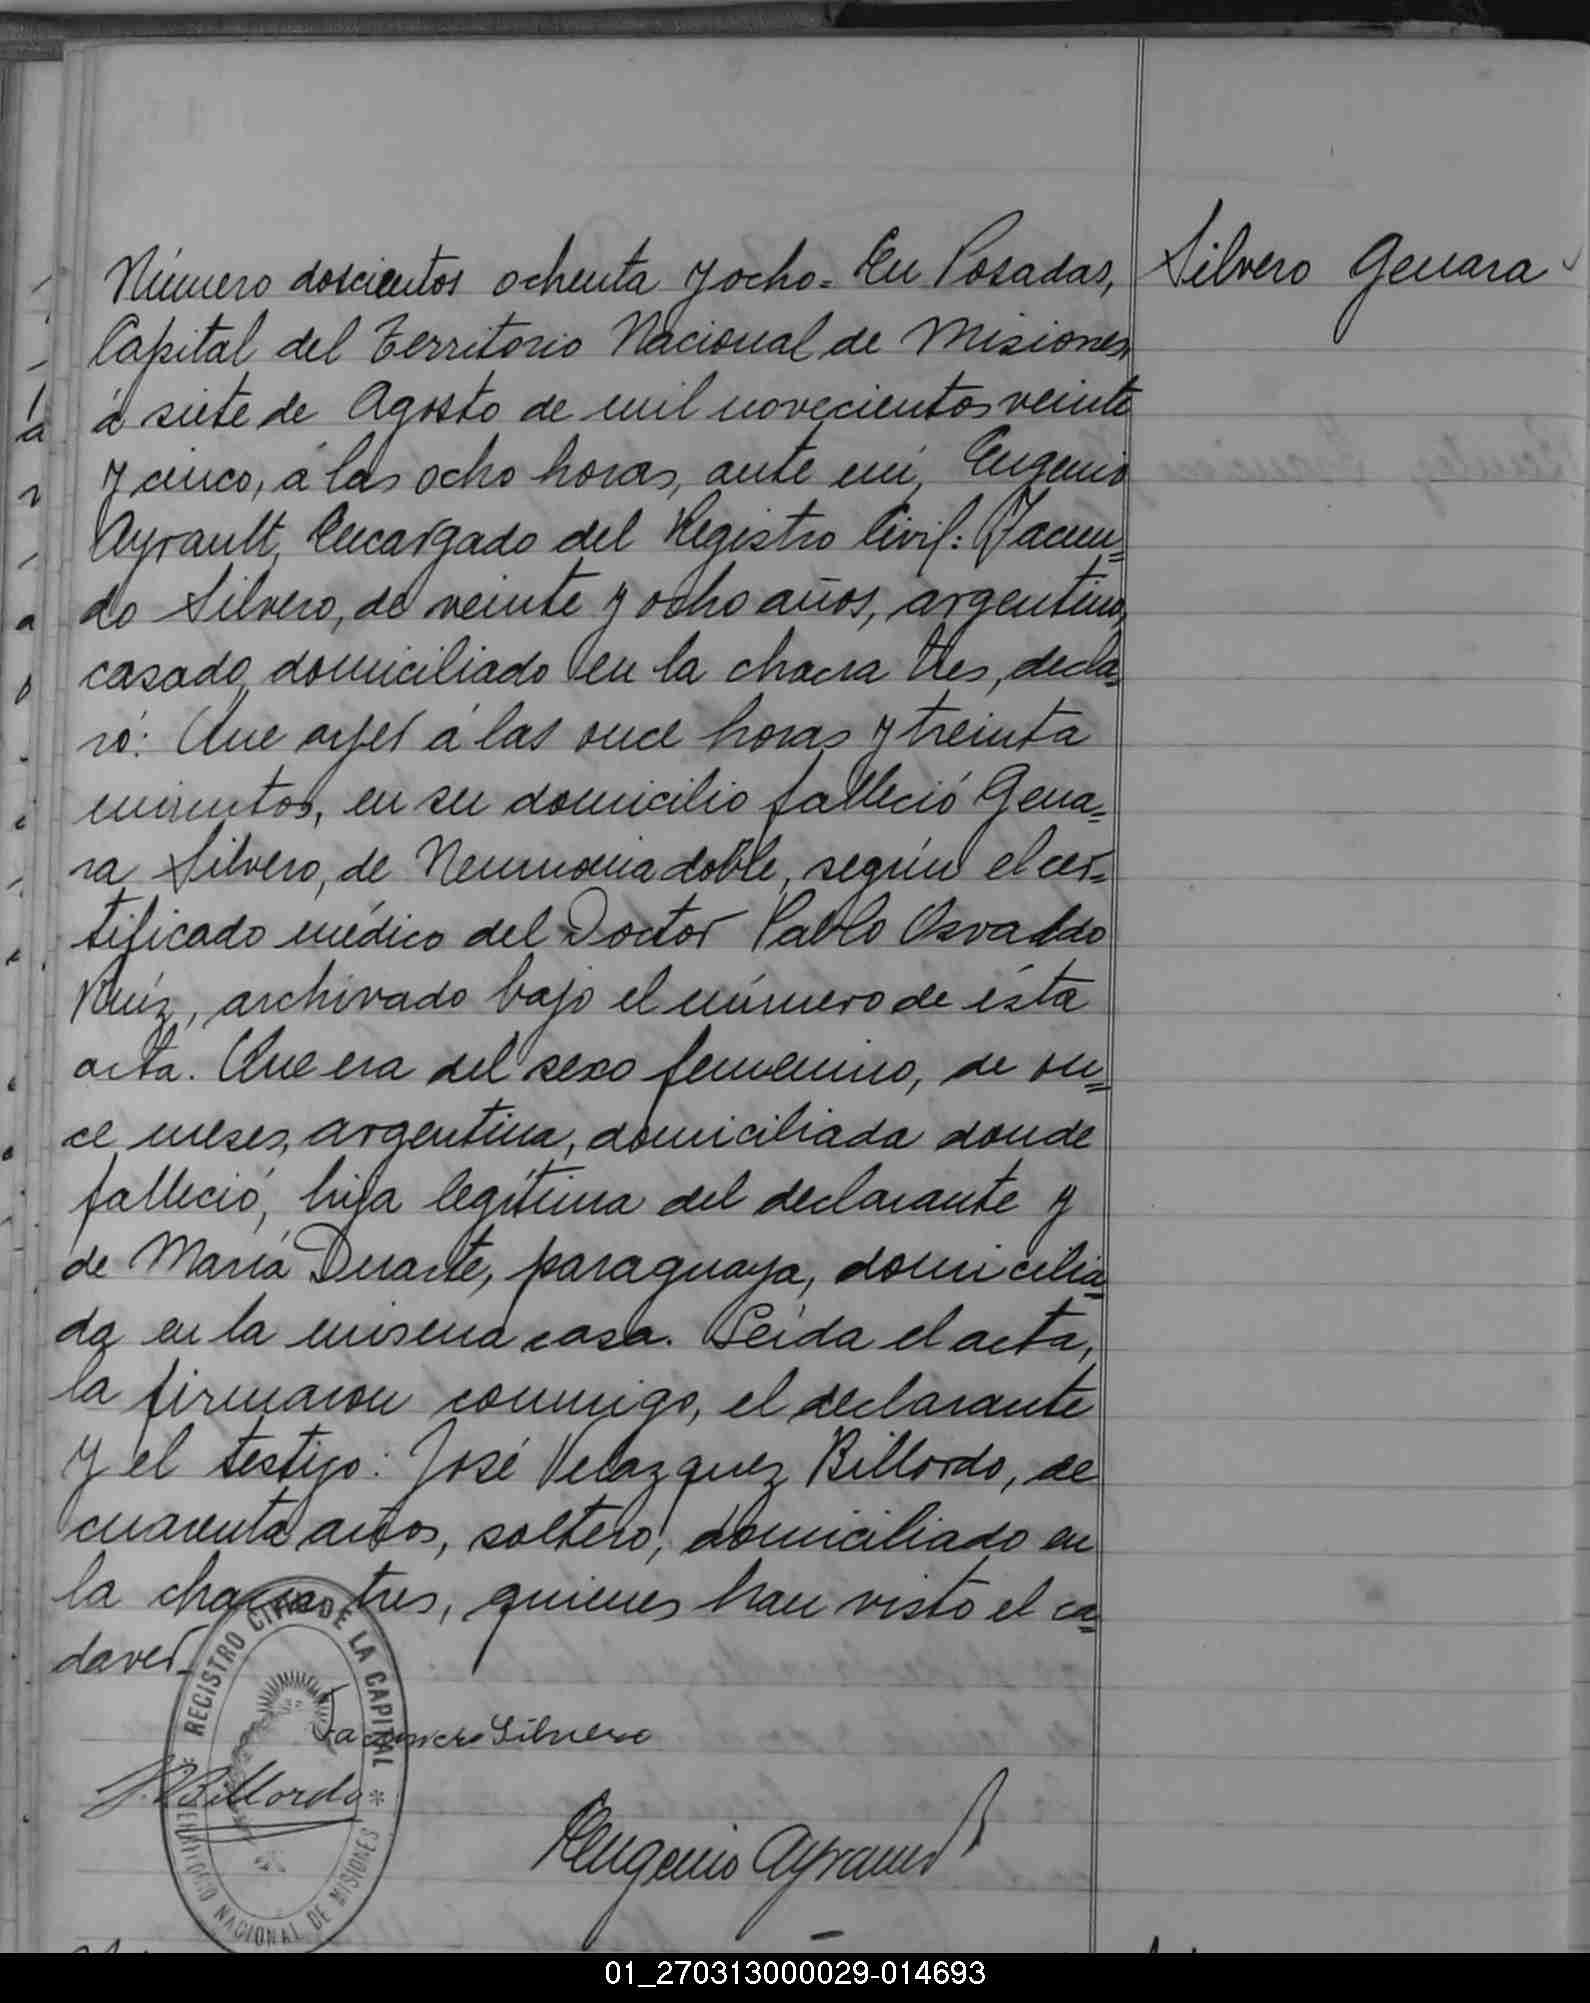 Número doscientos ochenta y ocho = En Posadas,
Silvero Genara
Capital del Territorio Nacional de Misiones,
á siete de Agosto de mil novecientos veinte
y cinco, á las ocho horas, ante mí, Eugenio
Ayrault, Encargado del Registro Civil: Facun=
do Silvero, de veinte y ocho años, argentino,
casado, domiciliado en la chacra tres, decla=
ró: Que ayer á las once horas y treinta
minutos, en su domicilio falleció Gena=
ra Silvero, de Neumonia doble, según el cer=
tificado médico del Doctor Pablo Osvaldo
Ruíz, archivado bajo el número de ésta
acta. Que era del sexo femenino, de on=
ce meses, argentina, domiciliada donde
falleció, hija legítima del declarante y
de María Duarte, paraguaya, domicilia=
da en la misma casa. Leída el acta,
la firmaron conmigo, el declarante
y el testigo: José Velazquez Billordo, de
cuarenta años, soltero, domiciliado en
la chacra tres, quienes han visto el ca=
daver.
REGISTRO CIVIL DE LA CAPITAL
* TERRITORIO NACIONAL DE MISIONES *
Facundo Silvero
J. V. Billordo
Eugenio Ayrault
01_270313000029-014693